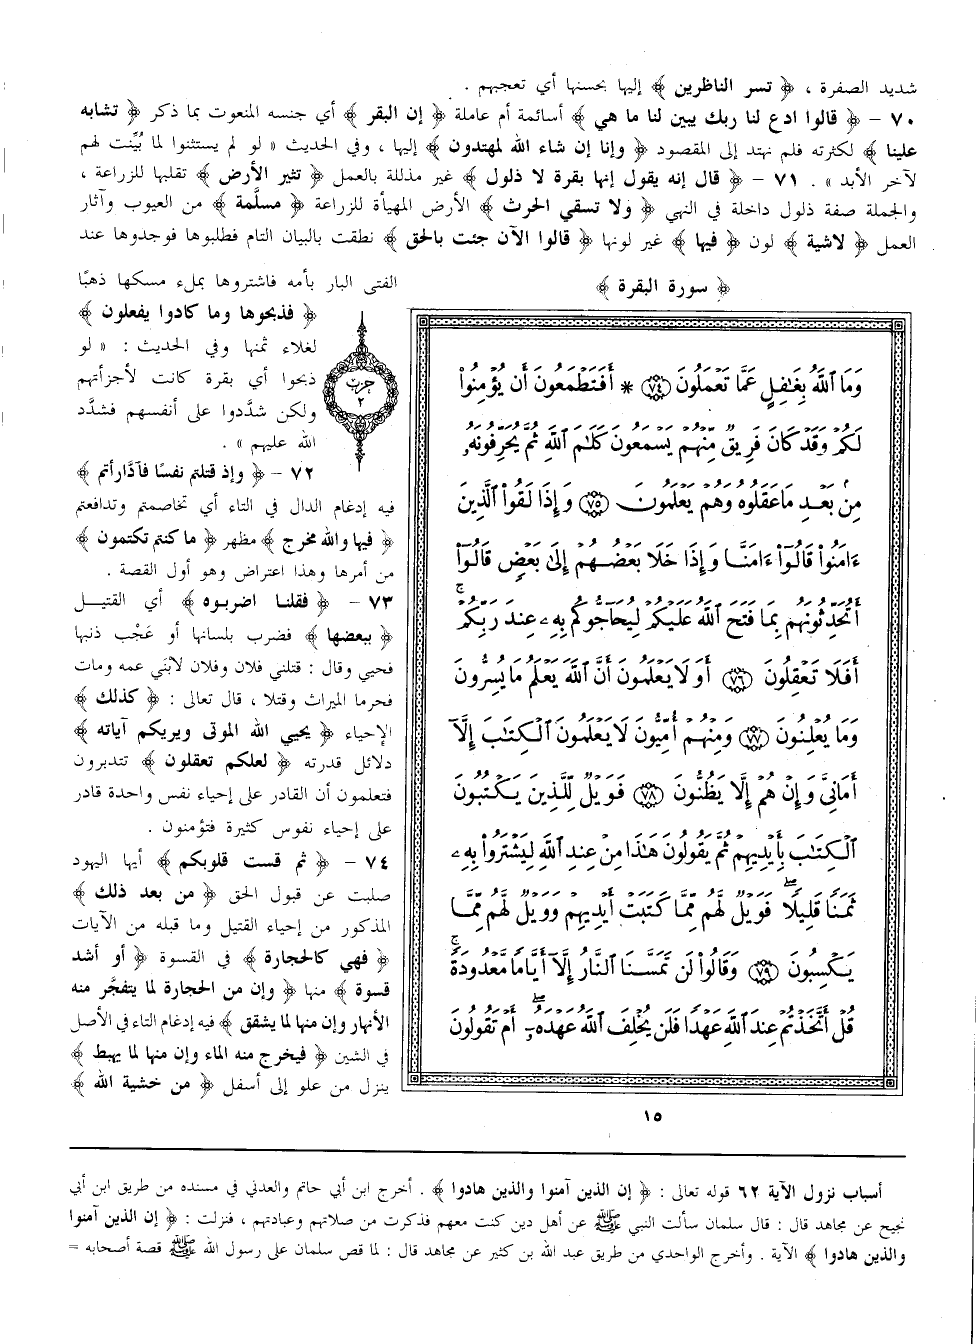 شديد الصفرة ، ﴿ تسر الناظرين ﴾ إليها بحسنها أي تعجبهم .
٧٠ – ﴿ قالوا ادع لنا ربك يبين لنا ما هي ﴾ أسائمة أم عاملة ﴿ إن البقر ﴾ أي جنسه المنعوت بما ذكر ﴿ تشابه
علينا ﴾ لكثرته فلم نهتد إلى المقصود ﴿ وإنا إن شاء الله لمهتدون ﴾ إليها ، وفي الحديث « لو لم يستثنوا لما بُيِّنت لهم
لآخر الأبد » . ٧١ – ﴿ قال إنه يقول إنها بقرة لا ذلول ﴾ غير مذللة بالعمل ﴿ تثير الأرض ﴾ تقلبها للزراعة ،
والجملة صفة ذلول داخلة في النهي ﴿ ولا تسقي الحرث ﴾ الأرض المهيأة للزراعة ﴿ مسلَّمة ﴾ من العيوب وآثار
العمل ﴿ لاشية ﴾ لون ﴿ فيها ﴾ غير لونها ﴿ قالوا الآن جئت بالحق ﴾ نطقت بالبيان التام فطلبوها فوجدوها عند
الفتى البار بأمه فاشتروها بملء مسكها ذهبًا
﴿ فذبحوها وما كادوا يفعلون ﴾
لغلاء ثمنها وفي الحديث : « لو
ذبحوا أي بقرة كانت لأجزأتهم
ولكن شدَّدوا على أنفسهم فشدَّد
الله عليهم » .
٧٢ – ﴿ وإذ قتلتم نفسًا فآدَّارأتم ﴾
فيه إدغام الدال في التاء أي تخاصمتم وتدافعتم
﴿ فيها والله مخرج ﴾ مظهر ﴿ ما كنتم تكتمون ﴾
من أمرها وهذا اعتراض وهو أول القصة .
٧٣ – ﴿ فقلنا اضربوه ﴾ أي القتيل
﴿ ببعضها ﴾ فضرب بلسانها أو عَجْب ذنبها
فحيي وقال : قتلني فلان وفلان لابْنَي عمه ومات
فحرما الميراث وقتلا ، قال تعالى : ﴿ كذلك ﴾
الإحياء ﴿ يحيي الله الموتى ويريكم آياته ﴾
دلائل قدرته ﴿ لعلكم تعقلون ﴾ تتدبرون
فتعلمون أن القادر على إحياء نفس واحدة قادر
على إحياء نفوس كثيرة فتؤمنون .
٧٤ – ﴿ ثم قست قلوبكم ﴾ أيها اليهود
صلبت عن قبول الحق ﴿ من بعد ذلك ﴾
المذكور من إحياء القتيل وما قبله من الآيات
﴿ فهي كالحجارة ﴾ في القسوة ﴿ أو أشد
قسوة ﴾ منها ﴿ وإن من الحجارة لما يتفجَّر منه
الأنهار وإن منها لما يشقق ﴾ فيه إدغام التاء في الأصل
في الشين ﴿ فيخرج منه الماء وإن منها لما يهبط ﴾
ينزل من علو إلى أسفل ﴿ من خشية الله ﴾
حزب
٢
﴿ سورة البقرة ﴾
وَمَا ٱللَّهُ بِغَٰفِلٍ عَمَّا تَعْمَلُونَ ﴿٧٤﴾ * أَفَتَطْمَعُونَ أَن يُؤْمِنُوا۟
لَكُمْ وَقَدْ كَانَ فَرِيقٌ مِّنْهُمْ يَسْمَعُونَ كَلَٰمَ ٱللَّهِ ثُمَّ يُحَرِّفُونَهُۥ
مِنۢ بَعْدِ مَا عَقَلُوهُ وَهُمْ يَعْلَمُونَ ﴿٧٥﴾ وَإِذَا لَقُوا۟ ٱلَّذِينَ
ءَامَنُوا۟ قَالُوٓا۟ ءَامَنَّا وَإِذَا خَلَا بَعْضُهُمْ إِلَىٰ بَعْضٍ قَالُوٓا۟
أَتُحَدِّثُونَهُم بِمَا فَتَحَ ٱللَّهُ عَلَيْكُمْ لِيُحَآجُّوكُم بِهِۦ عِندَ رَبِّكُمْ ۚ
أَفَلَا تَعْقِلُونَ ﴿٧٦﴾ أَوَلَا يَعْلَمُونَ أَنَّ ٱللَّهَ يَعْلَمُ مَا يُسِرُّونَ
وَمَا يُعْلِنُونَ ﴿٧٧﴾ وَمِنْهُمْ أُمِّيُّونَ لَا يَعْلَمُونَ ٱلْكِتَٰبَ إِلَّآ
أَمَانِىَّ وَإِنْ هُمْ إِلَّا يَظُنُّونَ ﴿٧٨﴾ فَوَيْلٌ لِّلَّذِينَ يَكْتُبُونَ
ٱلْكِتَٰبَ بِأَيْدِيهِمْ ثُمَّ يَقُولُونَ هَٰذَا مِنْ عِندِ ٱللَّهِ لِيَشْتَرُوا۟ بِهِۦ
ثَمَنًا قَلِيلًا ۖ فَوَيْلٌ لَّهُم مِّمَّا كَتَبَتْ أَيْدِيهِمْ وَوَيْلٌ لَّهُم مِّمَّا
يَكْسِبُونَ ﴿٧٩﴾ وَقَالُوا۟ لَن تَمَسَّنَا ٱلنَّارُ إِلَّآ أَيَّامًا مَّعْدُودَةً ۚ
قُلْ أَتَّخَذْتُمْ عِندَ ٱللَّهِ عَهْدًا فَلَن يُخْلِفَ ٱللَّهُ عَهْدَهُۥٓ ۖ أَمْ تَقُولُونَ
١٥
أسباب نزول الآية ٦٢ قوله تعالى : ﴿ إن الذين آمنوا والذين هادوا ﴾ . أخرج ابن أبي حاتم والعدني في مسنده من طريق ابن أبي
نجيح عن مجاهد قال : قال سلمان سألت النبي ﷺ عن أهل دين كنت معهم فذكرت من صلاتهم وعبادتهم ، فنزلت : ﴿ إن الذين آمنوا
والذين هادوا ﴾ الآية . وأخرج الواحدي من طريق عبد الله بن كثير عن مجاهد قال : لما قص سلمان على رسول الله ﷺ قصة أصحابه =